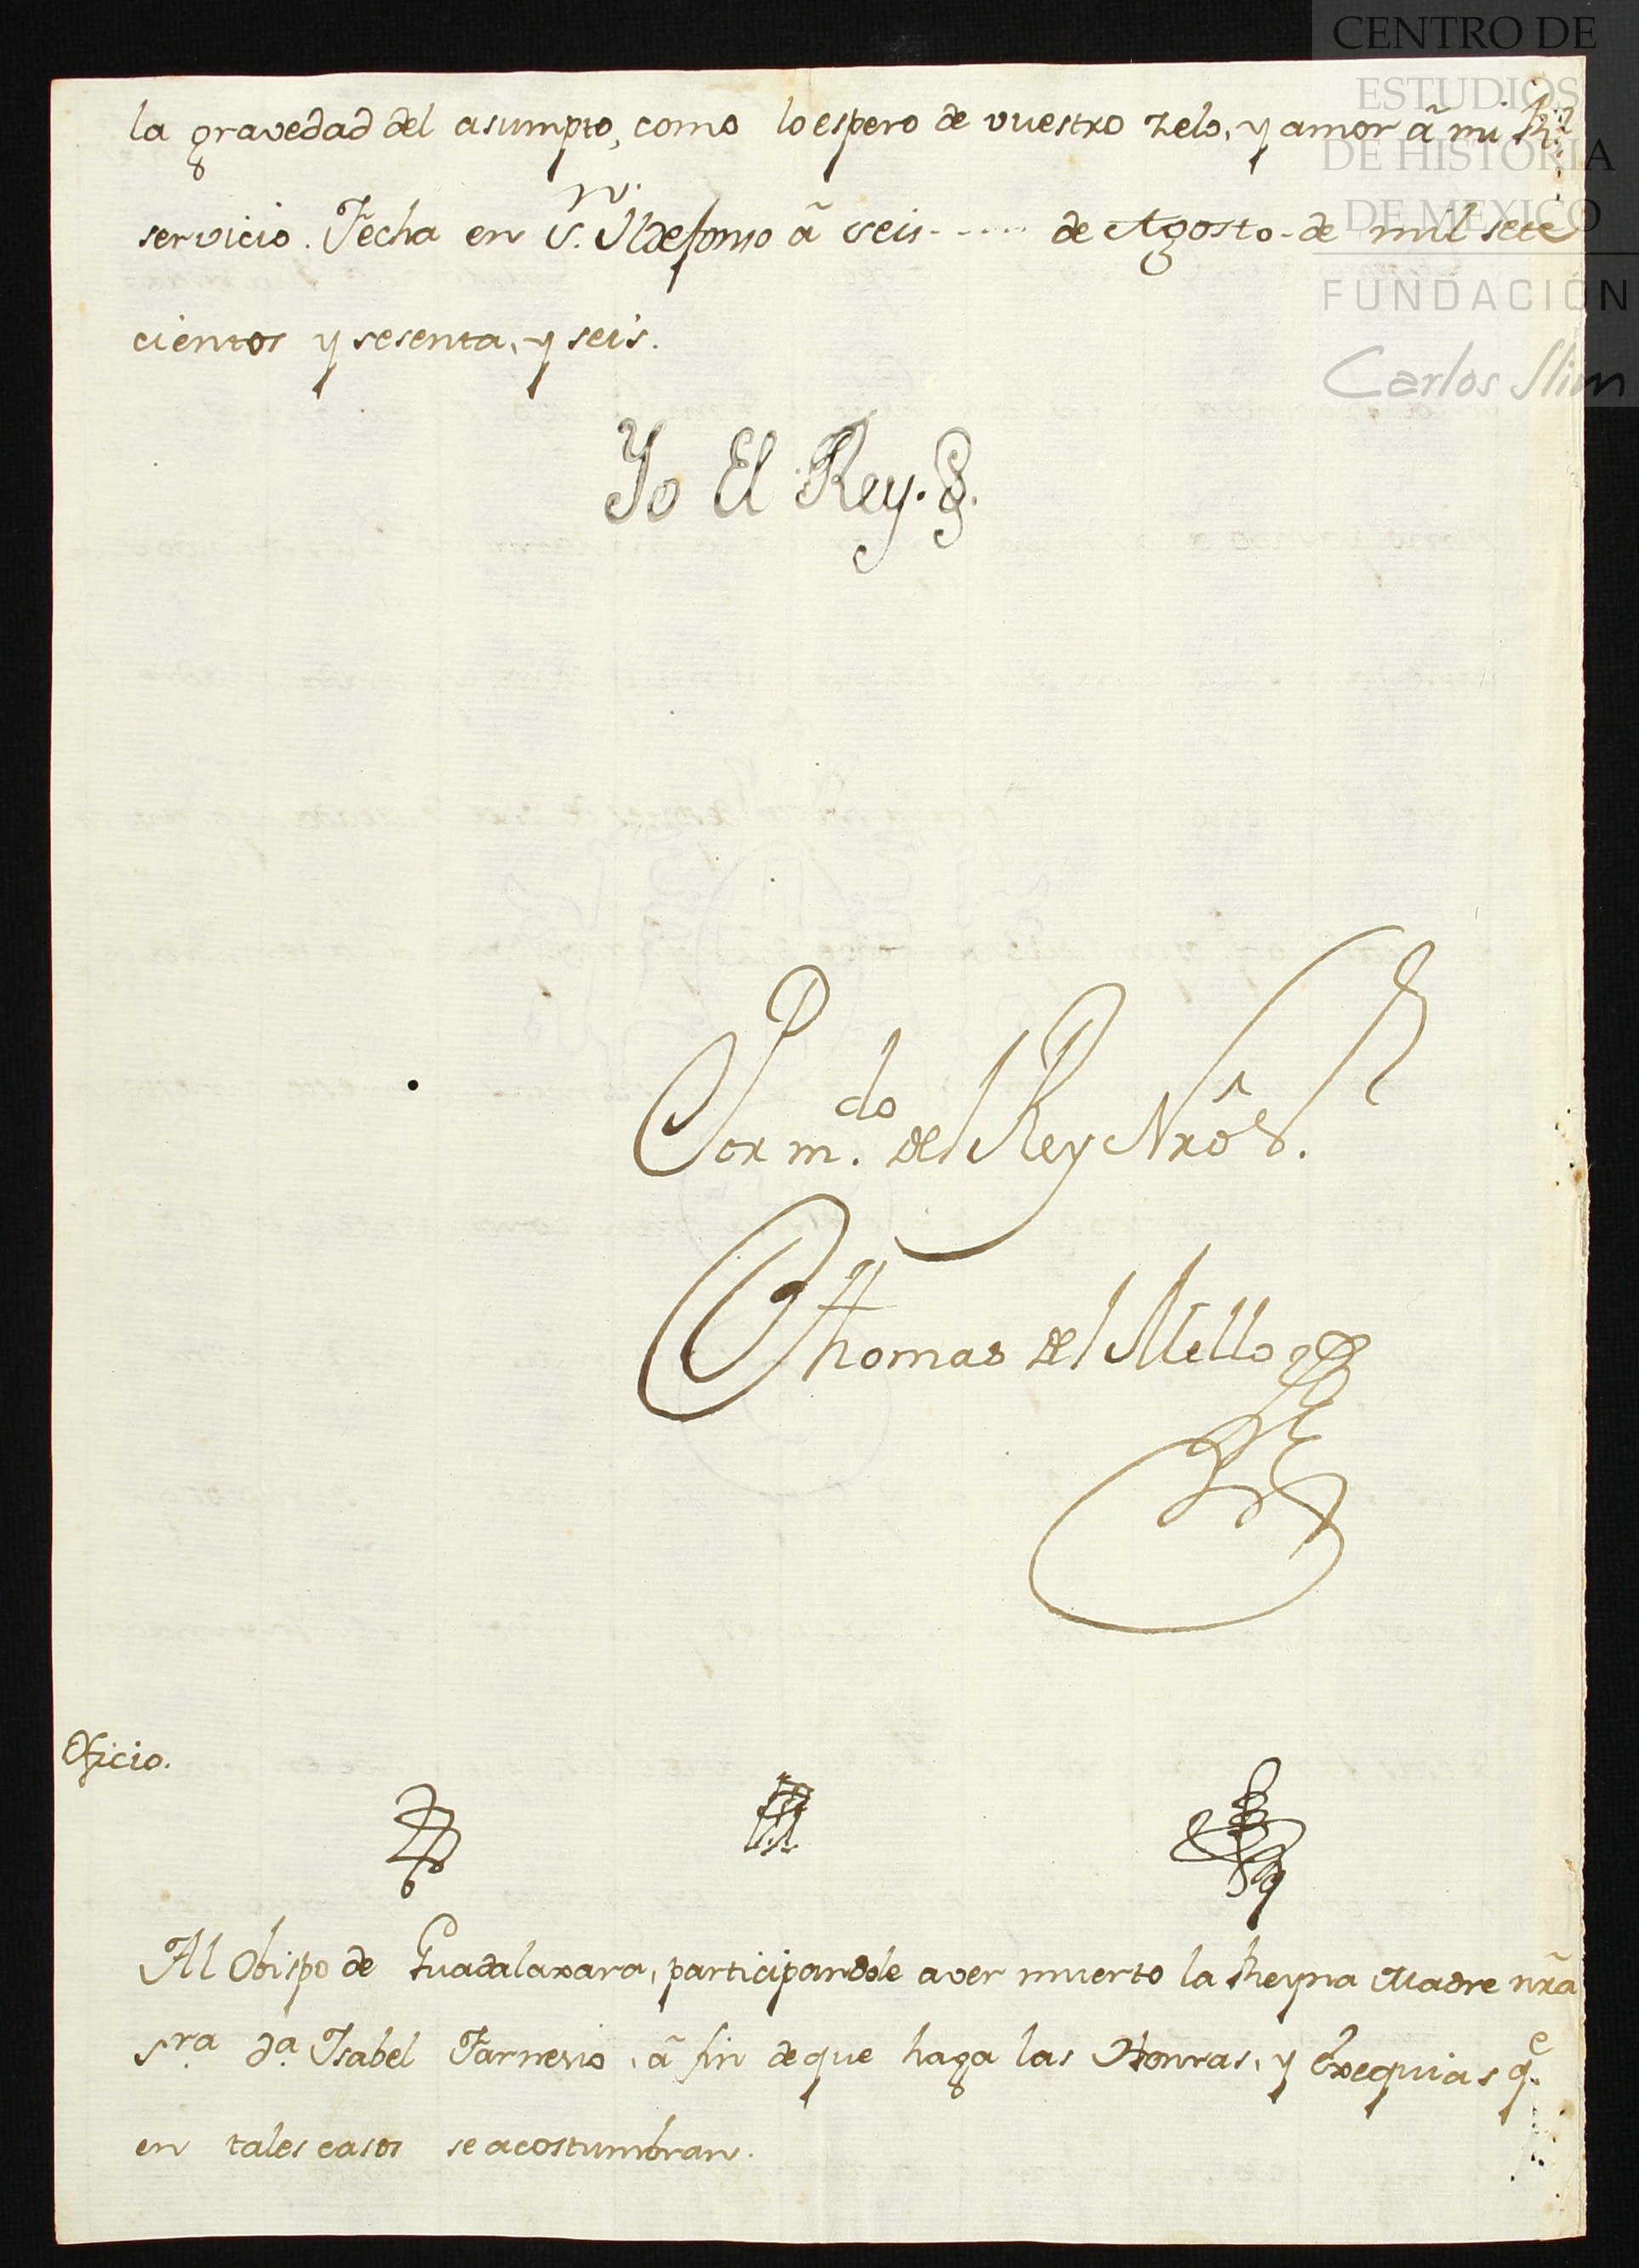 CENTRO DE
ESTUDIOS
DE HISTORIA
DE MEXICO
FUNDACIÓN
Carlos Slim
la gravedad del asumpto, como lo espero de vuestro zelo, y amor â mi R.l
servicio. Fecha en S.n Yldefonso â seis ..... de Agosto de mil sete
cientos y sesenta, y seis.
Yo El Rey.
Por m.do del Rey Nrô S.r
Thomas del Mello
Oficio.
Al Obispo de Guadalaxara, participandole aver muerto la Reyna Madre nrâ
s.ra d.a Isabel Farnesio, â fin de que haga las Honrras, y Exequias q.e
en tales casos se acostumbran.